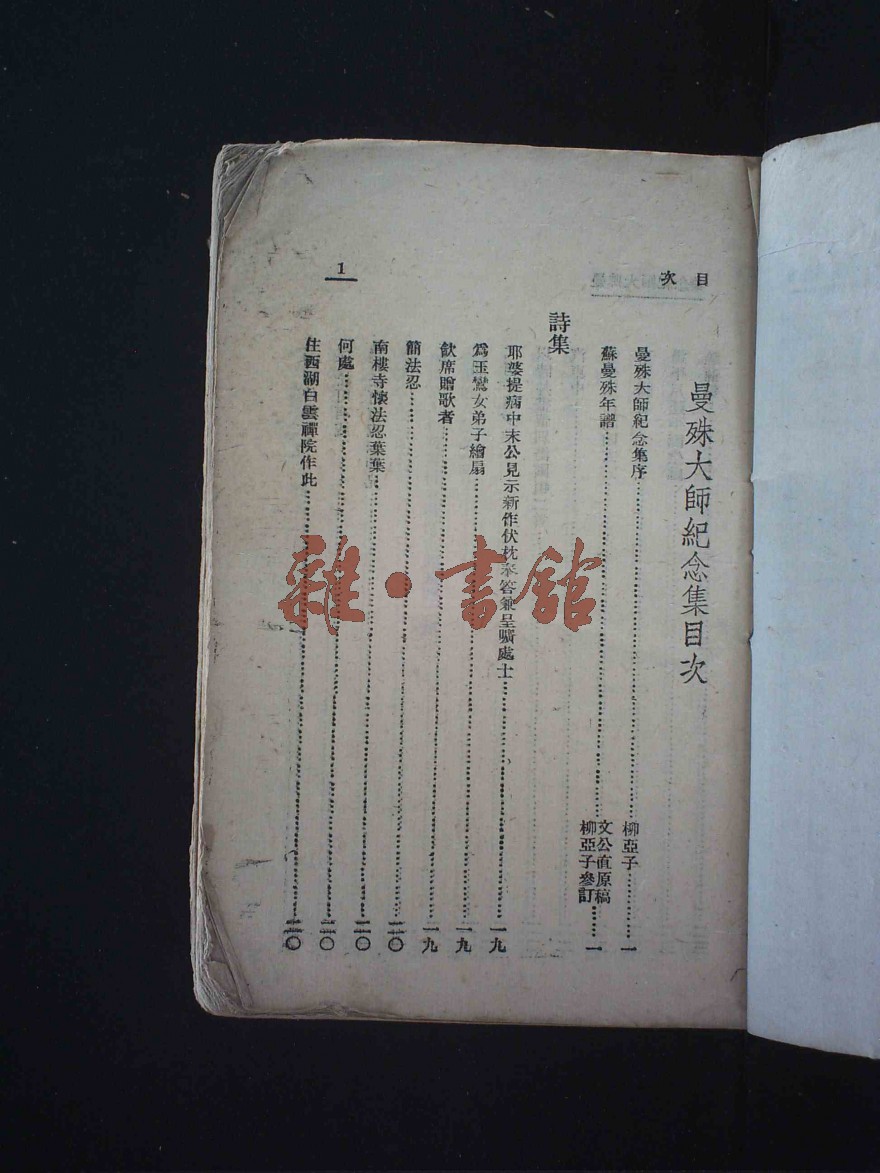 目次
1
曼殊大師紀念集目次
曼殊大師紀念集序……柳亞子……一
蘇曼殊年譜……文公直原稿 柳亞子參訂……一
詩集
耶婆提病中末公見示新作伏枕奉答兼呈曠處士……一九
爲玉鸞女弟子繪扇……一九
飲席贈歌者……一九
簡法忍……二〇
南樓寺懷法忍葉葉……二〇
何處……二〇
住西湖白雲禪院作此……二〇
雜·書館